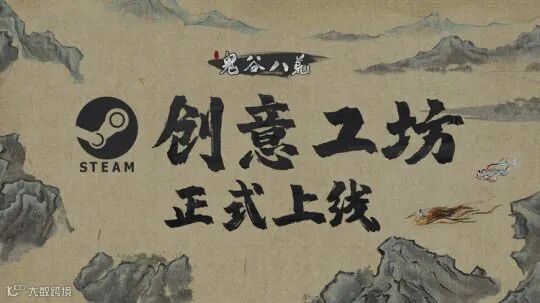 鬼谷八荒
STEAM
创意工坊
正式上线
大数跨境